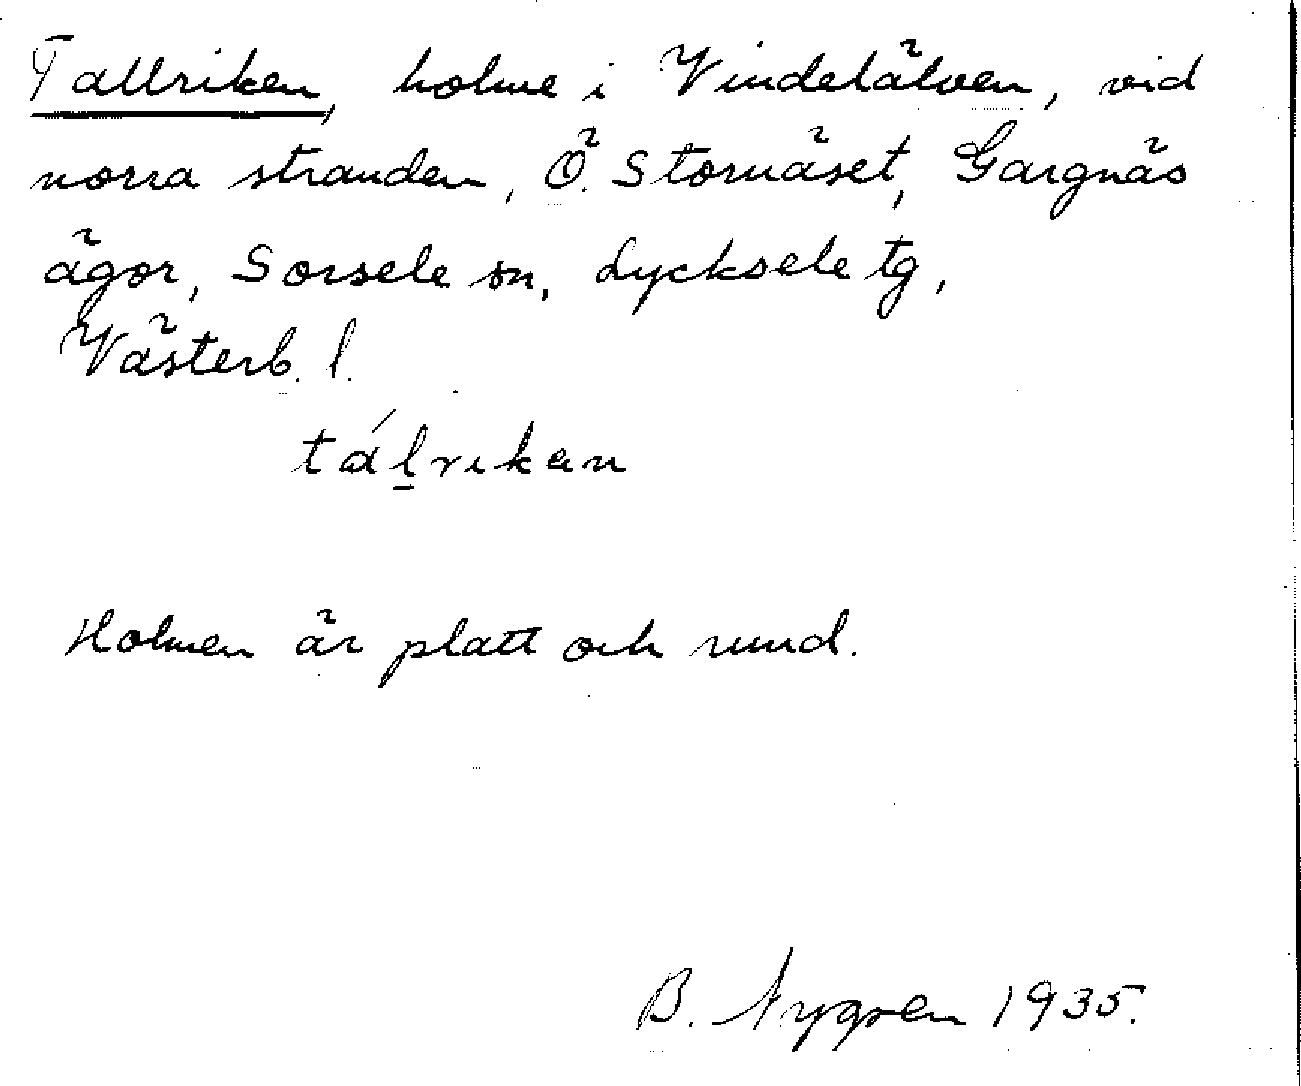 Tallriken, holme i Vindelälven, vid
norra stranden, Ö. Stornäset, Gargnäs
ägor, Sorsele sn, Lycksele tg,
Västerb. l.
tál̠rikan
Holmen är platt och rund.
B. Nygren 1935.